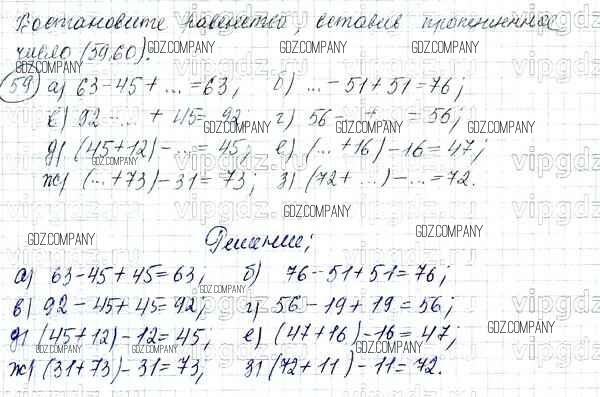 Востановите равенство, вставив пропущенное
число (59,60).
59 а) 63-45+...=63, б) ...-51+51=76;
в) 92-...+45=92, г) 56-...+...=56;
д) (45+12)-...=45, е) (...+16)-16=47;
ж) (...+73)-31=73; з) (72+...)-...=72.
Решение;
а) 63-45+45=63, б) 76-51+51=76;
в) 92-45+45=92; г) 56-19+19=56;
д) (45+12)-12=45; е) (47+16)-16=47;
ж) (31+73)-31=73; з) (72+11)-11=72.
GDZ.COMPANY
vipgdz